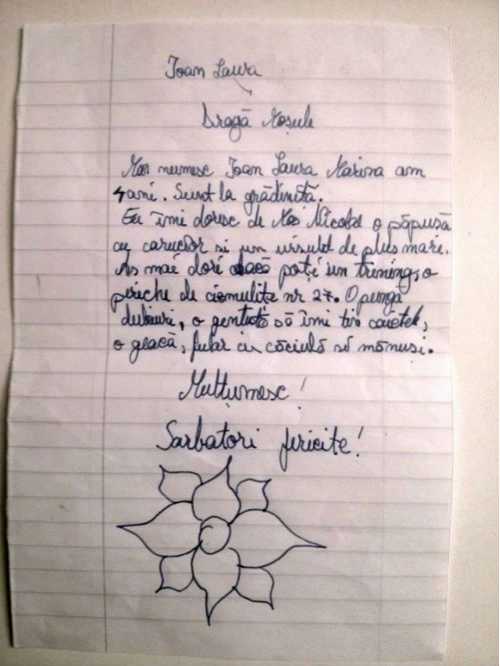 Ioan Laura
Dragă Moșule
Mă numesc Ioan Laura Marina am
4 ani. Sunt la grădiniță.
Eu îmi doresc de Moș Nicolae o păpușă
cu carucior si un ursulet de plus mare.
As mai dori dacă poți un trening, o
pereche de cizmulițe nr 27. O pungă
dulciuri, o gentuță să îmi țin caietele,
o geacă, fular cu căciulă si mănusi.
Mulțumesc!
Sarbatori fericite!